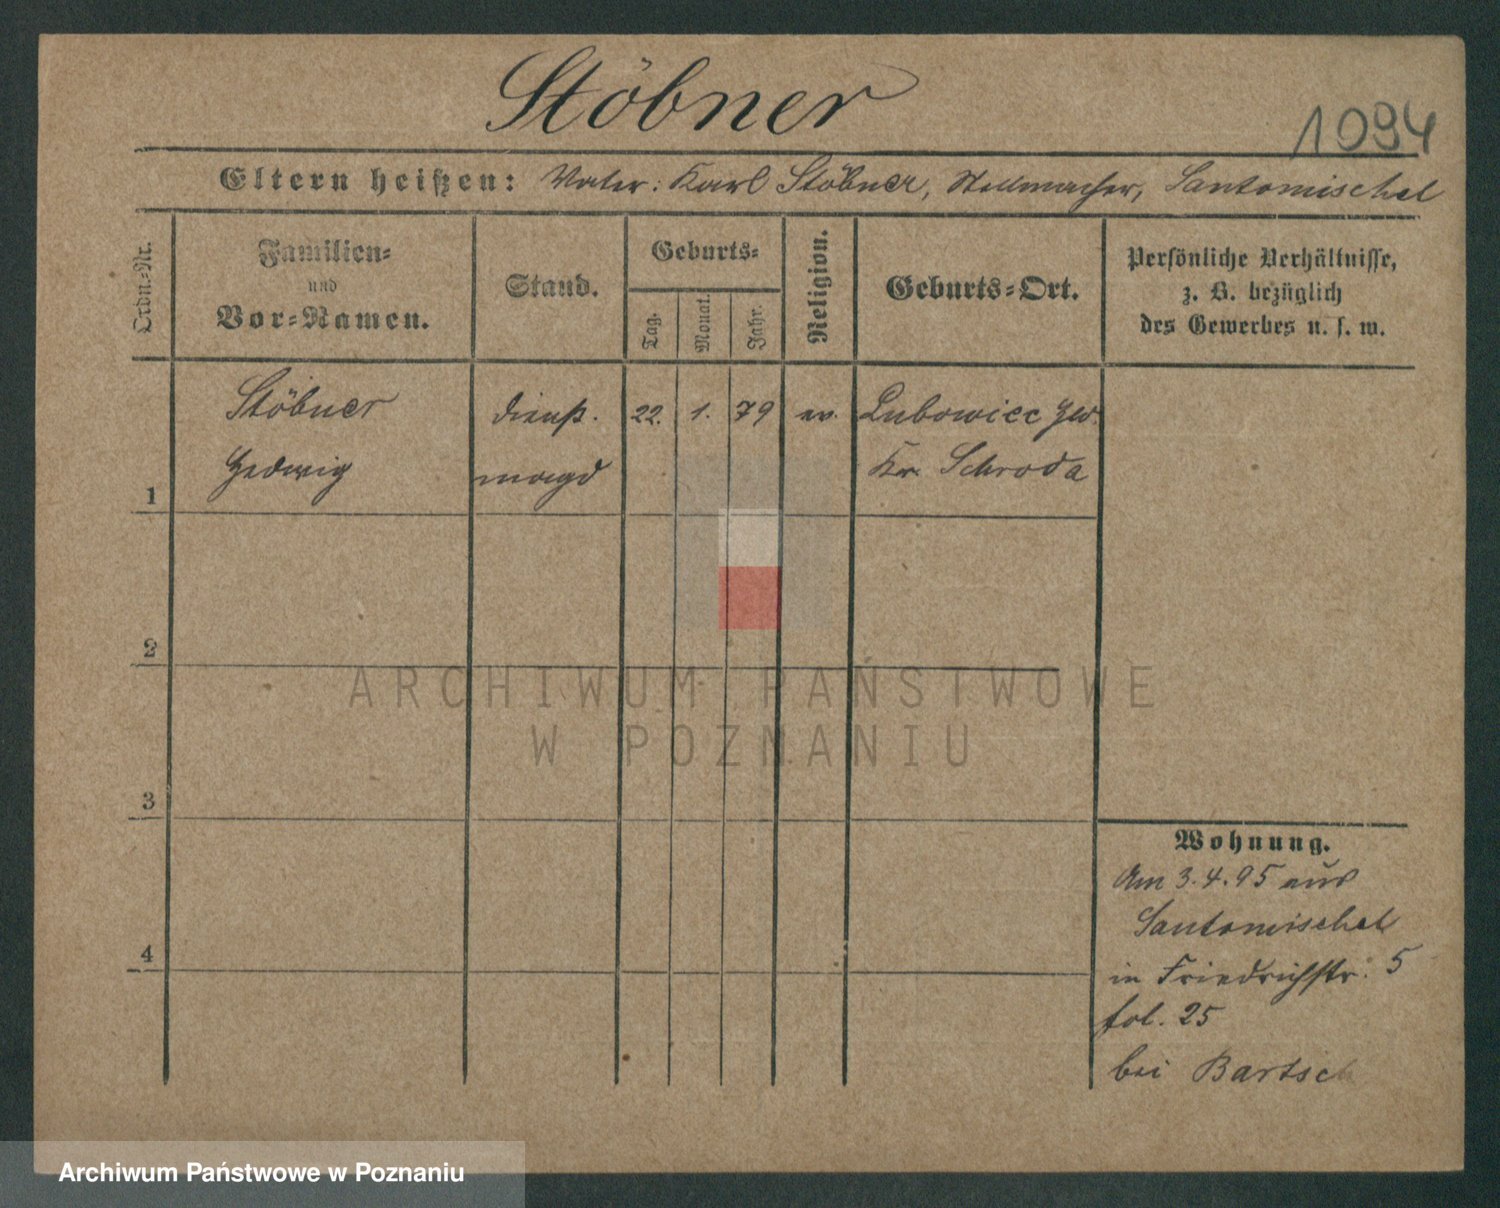 Stöbner
1094
Eltern heißen: Vater: Karl Stöbner, Stellmacher, Santomischel
Ordn.-Nr.
Familien-
und
Vor-Namen.
Stand.
Geburts-
Tag.
Monat.
Jahr.
Religion.
Geburts-Ort.
Persönliche Verhältnisse,
z. B. bezüglich
des Gewerbes u. s. w.
Stöbner dienst. 22. 1. 79 ev. Lubowicc
1 Hedwig magd Kr. Schroda
2
3
4
Wohnung.
Am 3.4.95 aus
Santomischel
in Friedrichstr. 5
fol. 25
bei Bartsch
ARCHIWUM PAŃSTWOWE
W POZNANIU
Archiwum Państwowe w Poznaniu